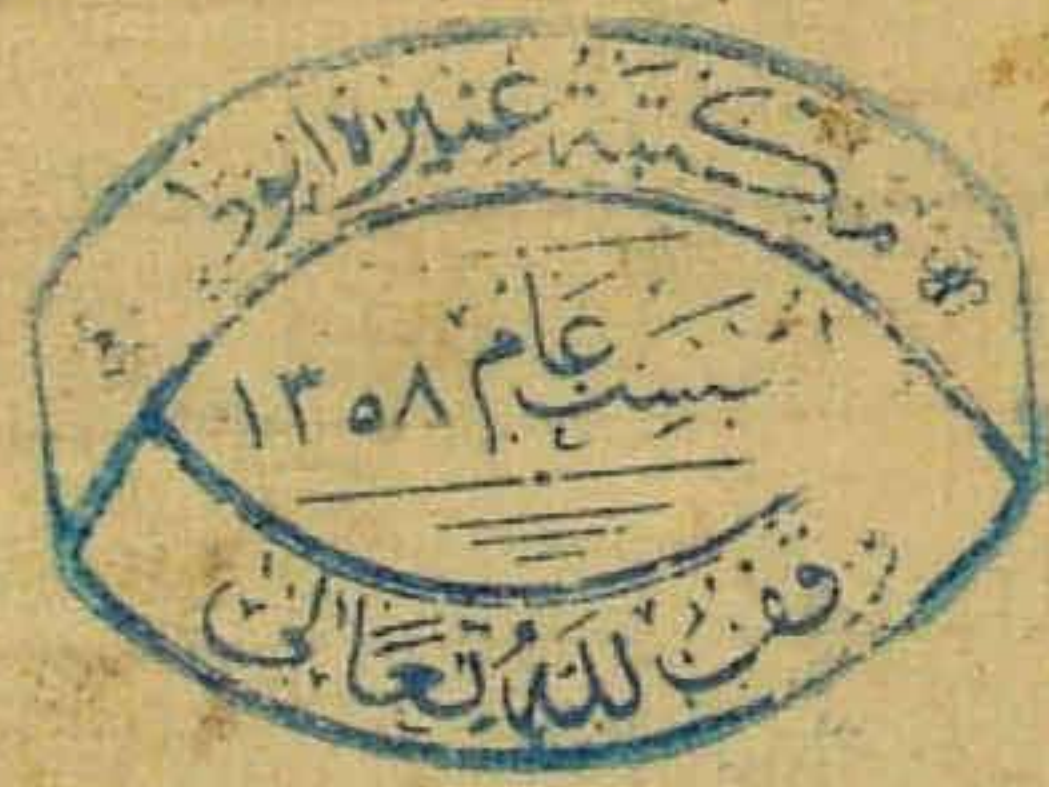 مكتبة عنيزة
اسست عام ١٣٥٨
وقف لله تعالى